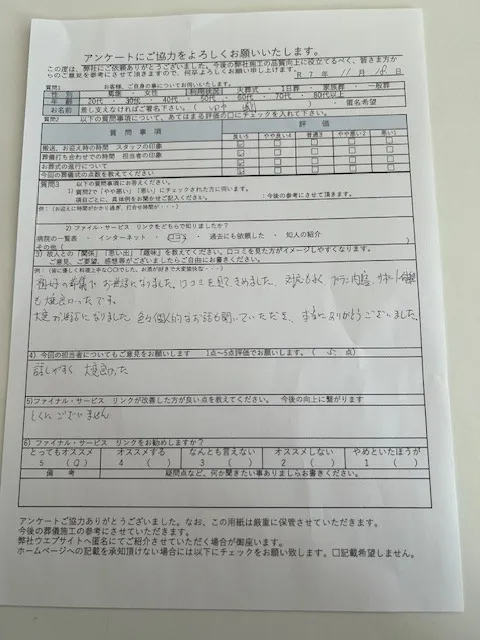 アンケートにご協力をよろしくお願いいたします。
この度は、弊社にご依頼ありがとうございました。今後の弊社施工の品質向上に役立てるべく、皆さま方か
らのご意見を参考にさせて頂きますので、何卒よろしくお願い申し上げます。
R 7 年 11 月 18 日
質問1 お客様、ご自身の事についてお伺いいたします。
性 別 男性 ・ 女性 利用状況 火葬式 ・ 1日葬 ・ 家族葬 ・ 一般葬
年 齢 20代 ・ 30代 ・ 40代 ・ 50代 ・ 60代 ・ 70代 ・ 80代以上
お名前 差し支えなければご署名下さい。 ( ) 匿名希望
質問2 以下の質問事項について、あてはまる評価の口にチェックを入れて下さい。
質 問 事 項 評 価
良い5 やや良い4 普通3 やや悪い2 悪い1
搬送、お迎え時の時間 スタッフの印象
葬儀打ち合わせでの時間 担当者の印象
お葬式の進行について
今回の葬儀式の点数を教えてください
質問3 以下の質問事項にお答えください。
1)質問2で「やや悪い」「悪い」にチェックされた方に伺います。
項目ごとに、具体例をお聞かせご記入ください。 :今後の参考にさせて頂きます。
例:(お迎えに時間がかかり過ぎ、打合せ時間が・・・)
2)ファイナル・サービス リンクをどちらで知りましたか?
病院の一覧表 ・ インターネット ・ 口コミ ・ 過去にも依頼した ・ 知人の紹介
その他(
3)故人との「関係」「思い出」「趣味」を教えてください。口コミを見た方がイメージしやすくなります。
ご意見、ご要望、感想等がございましたらご自由にお書きください。
例:(皆に優しく料理上手な〇〇でした、お酒が好きで大変愉快な・・・)
祖母の葬儀でお世話になりました。口コミを見てきめました。対応もよく、プラン内容、サポート
も大変良かったです。
大変お世話になりました。色々個人的なお話も聞いていただき、本当にありがとうございました。
4)今回の担当者についてもご意見をお願いします 1点~5点評価でお願いします。( 5 点)
話しやすく 大変良かった
5)ファイナル・サービス リンクが改善した方が良い点を教えてください。 今後の向上に繋がります
とくにございません
6)ファイナル・サービス リンクをお勧めしますか?
とってもオススメ オススメする なんとも言えない オススメしない やめといたほうが
5 (○) 4 ( ) 3 ( ) 2 ( ) 1 ( )
備 考 疑問点など、何か聞きたい事ありましらお書きください。
アンケートご協力ありがとうございました。なお、この用紙は厳重に保管させていただきます。
今後の葬儀施工の参考にさせていただきます。
弊社ウエブサイトへ匿名にてご紹介させていただく場合が御座います。
ホームページへの記載を承知頂けない場合には以下にチェックをお願い致します。□記載希望しません。